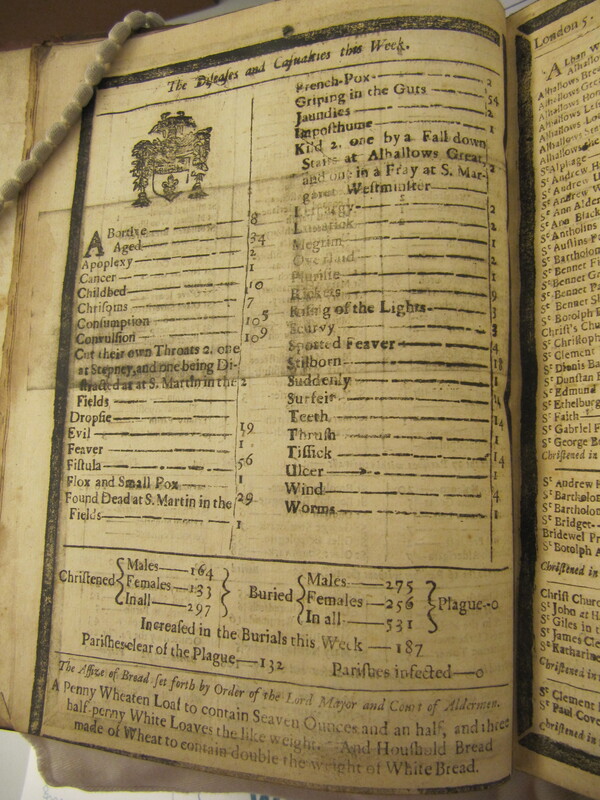 The Diseases and Casualties this Week.
Abortive 8
Aged 34
Apoplexy 2
Cancer 1
Childbed 10
Chrisoms 7
Consumption 105
Convulsion 109
Cut their own Throats 2, one
at Stepney, and one being Di-
stracted at at S. Martin in the 2
Fields
Dropsie 19
Evil 1
Feaver 56
Fistula 1
Flox and Small Pox 29
Found Dead at S. Martin in the
Fields 1
French-Pox 2
Griping in the Guts 54
Jaundies 2
Imposthume 1
Kild 2. one by a Fall down
Stairs at Alhallows Great, 2
and one in a Fray at S. Mar-
garet Westminster
Lethargy 2
Lunatick 1
Megrim 1
Overlaid 2
Plurisie 1
Rickets 9
Rising of the Lights 3
Scurvy 3
Spotted Feaver 4
Stilborn 18
Suddenly 1
Surfeit
Teeth 14
Thrush 1
Tissick 14
Ulcer 1
Wind 4
Worms 1
Christened
Males 164
Females 133
In all 297
Buried
Males 275
Females 256
In all 531
Plague 0
Increased in the Burials this Week 187
Parishes clear of the Plague 132 Parishes infected 0
The Assize of Bread set forth by Order of the Lord Mayor and Court of Aldermen.
A Penny Wheaten Loaf to contain Seaven Ounces and an half, and three
half-penny White Loaves the like weight. And Houshold Bread
made of Wheat to contain double the weight of White Bread.
London 5.
Alban W
Alhallows
Alhallows Bre
Alhallows Gre
Alhallows Hon
Alhallows
Alhallows
Alhallows
St Alphage
St Andrew H
St Andrew U
St Andrew W
St Ann Alder
St Ann Black
St Antholins
St Austins Pa
St Bartholom
St Bennet Fi
St Bennet Gr
St Bennet Pa
St Bennet S
St Botolph B
Christ's Chu
St Christoph
St Clement
St Dionis Ba
St Dunstan
St Edmund
St Ethelburg
St Faith
St Gabriel F
St George B
Christened in
St Andrew
St Barthol
St Bartholom
St Bridget
Bridewel Pr
St Botolph A
Christened in
Christ Churc
St John at H
St Giles in t
St James Cle
St Katharine
Christened in
St Clement
St Paul Cove
Christened in